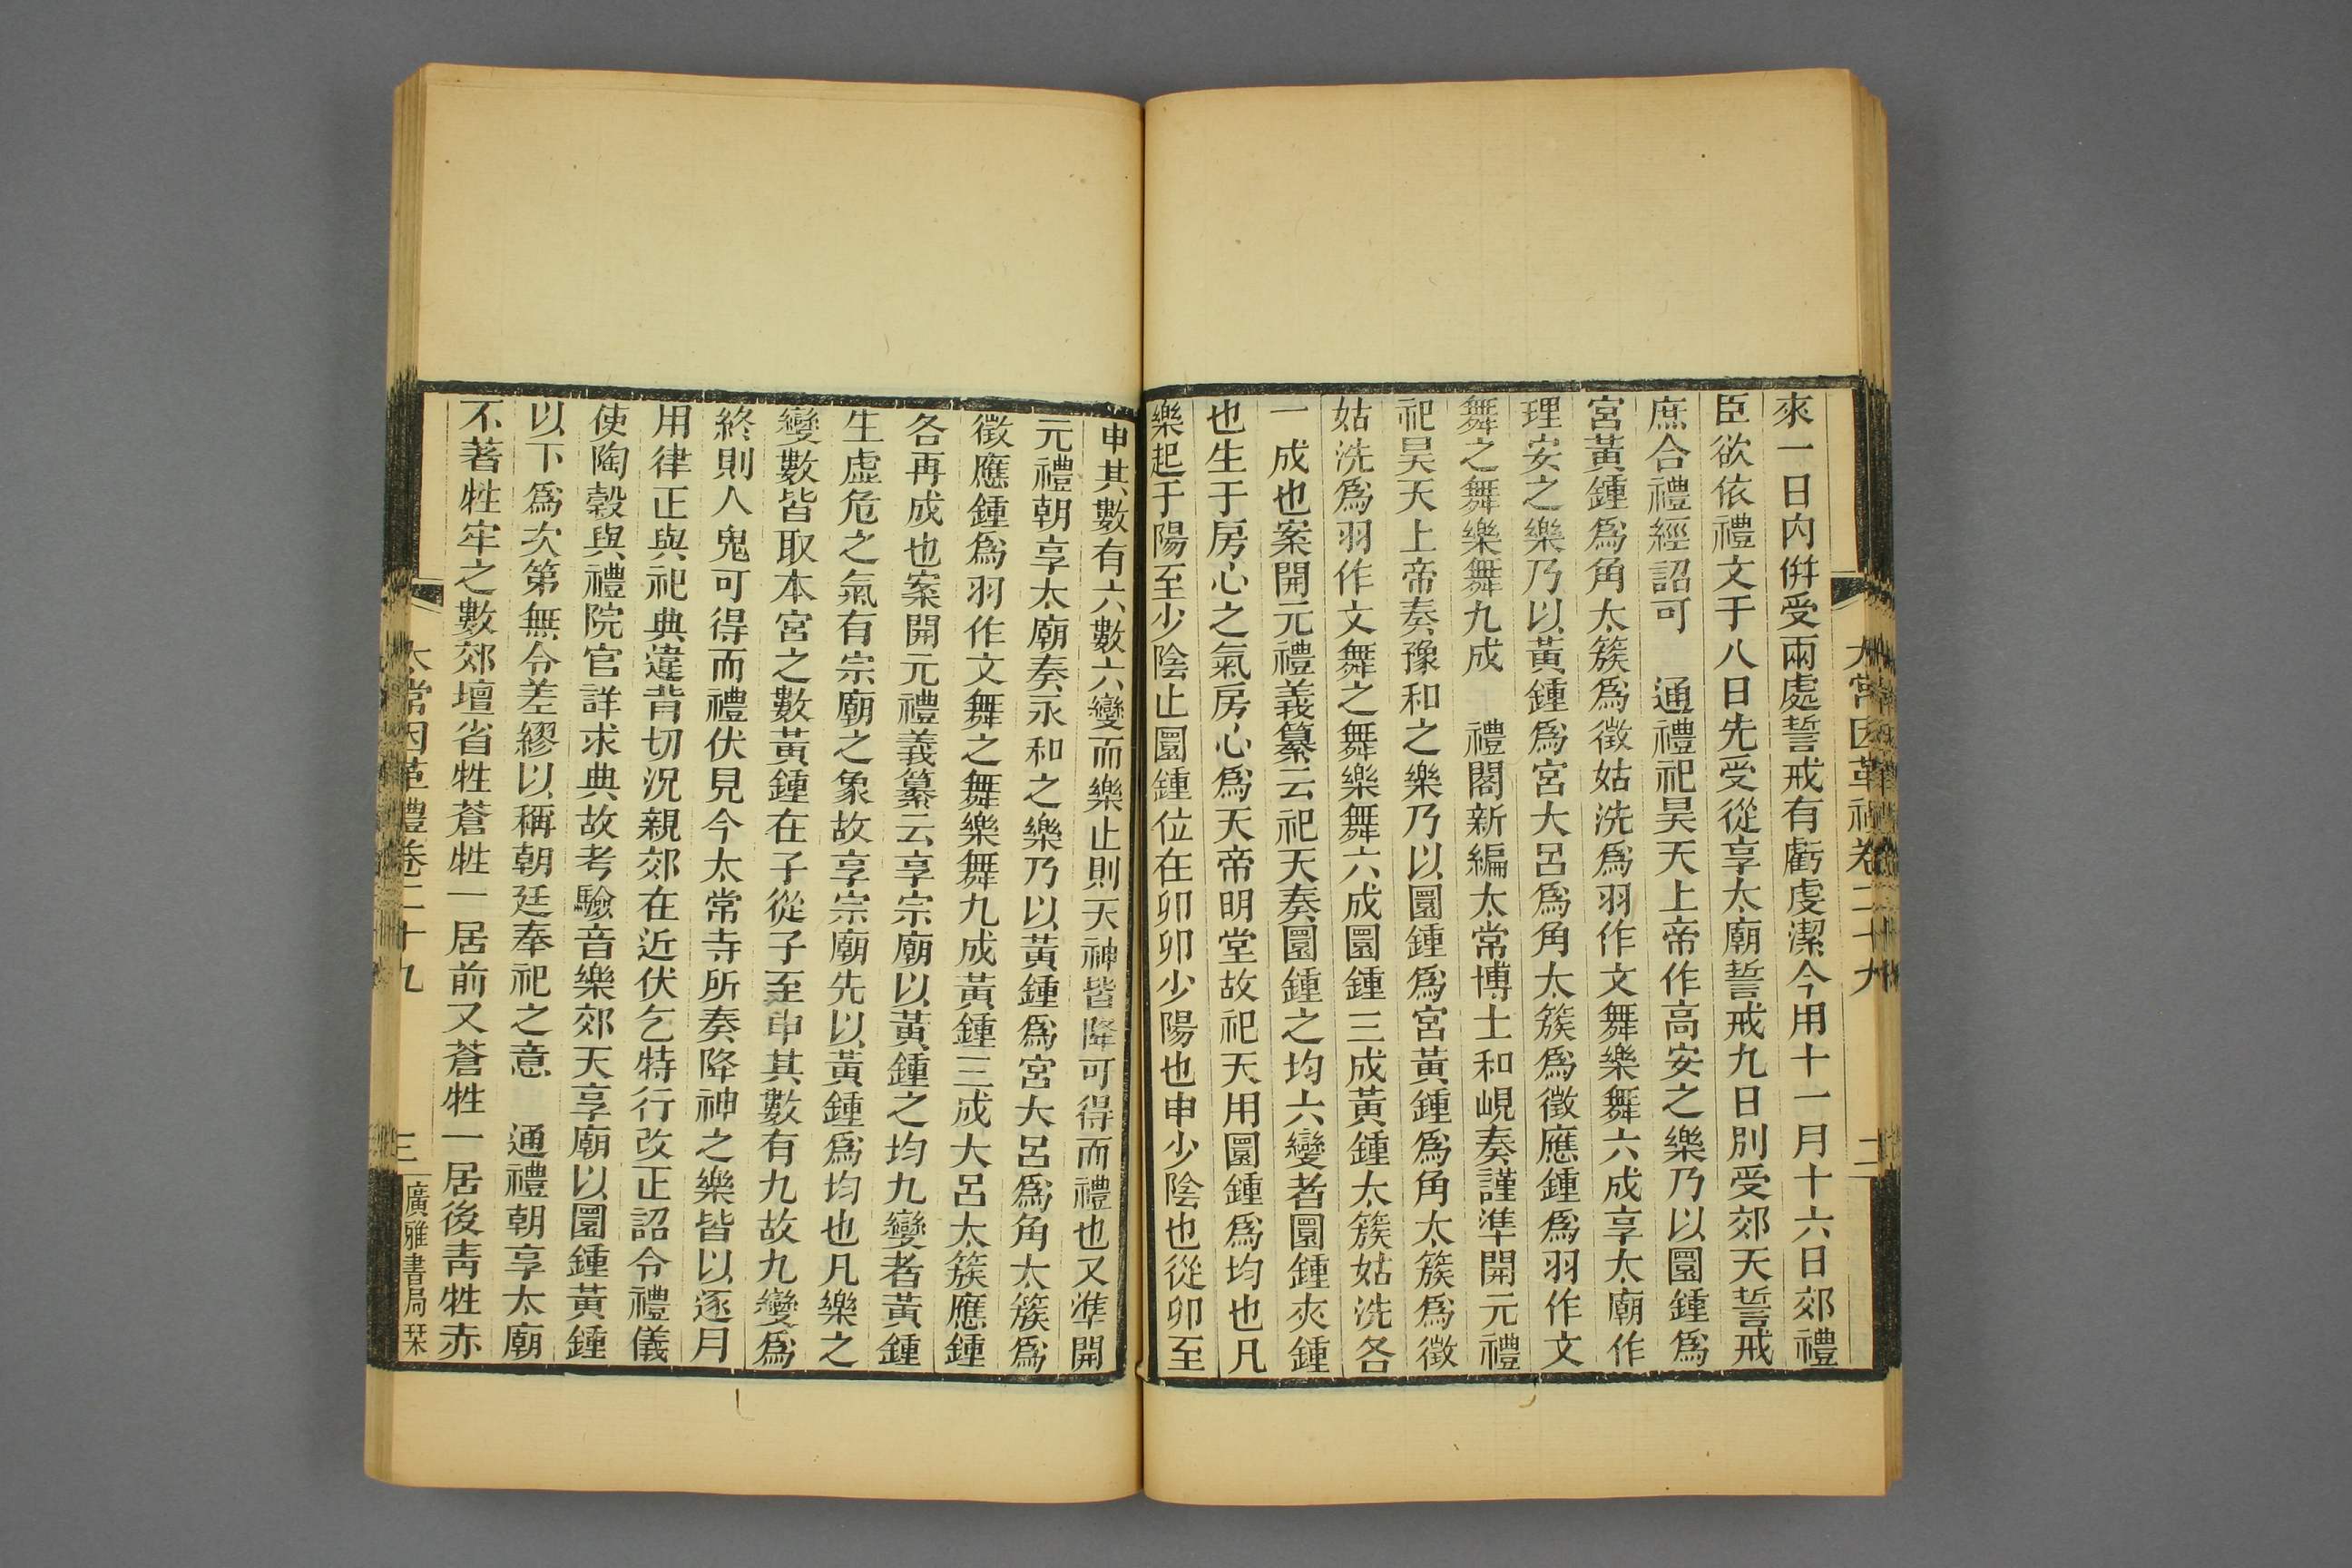 來一日內倂受兩處誓戒有虧虔潔今用十一月十六日郊禮
臣欲依禮文于八日先受從享太廟誓戒九日別受郊天誓戒
庶合禮經詔可　通禮祀昊天上帝作高安之樂乃以圜鍾爲
宮黃鍾爲角太簇爲徵姑洗爲羽作文舞樂舞六成享太廟作
理安之樂乃以黃鍾爲宮大呂爲角太簇爲徵應鍾爲羽作文
舞之舞樂舞九成　禮閣新編太常博士和峴奏謹準開元禮
祀昊天上帝奏豫和之樂乃以圜鍾爲宮黃鍾爲角太簇爲徵
姑洗爲羽作文舞之舞樂舞六成圜鍾三成黃鍾太簇姑洗各
一成也案開元禮義纂云祀天奏圜鍾之均六變者圜鍾夾鍾
也生于房心之氣房心爲天帝明堂故祀天用圜鍾爲均也凡
樂起于陽至少陰止圜鍾位在卯卯少陽也申少陰也從卯至
申其數有六數六變而樂止則天神皆降可得而禮也又準開
元禮朝享太廟奏永和之樂乃以黃鍾爲宮大呂爲角太簇爲
徵應鍾爲羽作文舞之舞樂舞九成黃鍾三成大呂太簇應鍾
各再成也案開元禮義纂云享宗廟以黃鍾之均九變者黃鍾
生虛危之氣有宗廟之象故享宗廟先以黃鍾爲均也凡樂之
變數皆取本宮之數黃鍾在子從子至申其數有九故九變爲
終則人鬼可得而禮伏見今太常寺所奏降神之樂皆以逐月
用律正與祀典違背切況親郊在近伏乞特行改正詔令禮儀
使陶穀與禮院官詳求典故考驗音樂郊天享廟以圜鍾黃鍾
以下爲次第無令差繆以稱朝廷奉祀之意　通禮朝享太廟
不著牲牢之數郊壇省牲蒼牲一居前又蒼牲一居後靑牲赤
太常因革禮卷二十九
三
廣雅書局栞